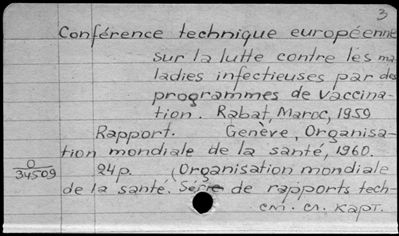 3
Conférence technique européenne
sur la lutte contre les ma-
ladies infectieuses par des
programmes de vaccina-
tion. Rabat, Maroc, 1959
Rapport. Genève, Organisa-
tion mondiale de la santé, 1960.
0
34509
24p. (Organisation mondiale
de la santé. Série de rapports tech-
см. сл. карт.